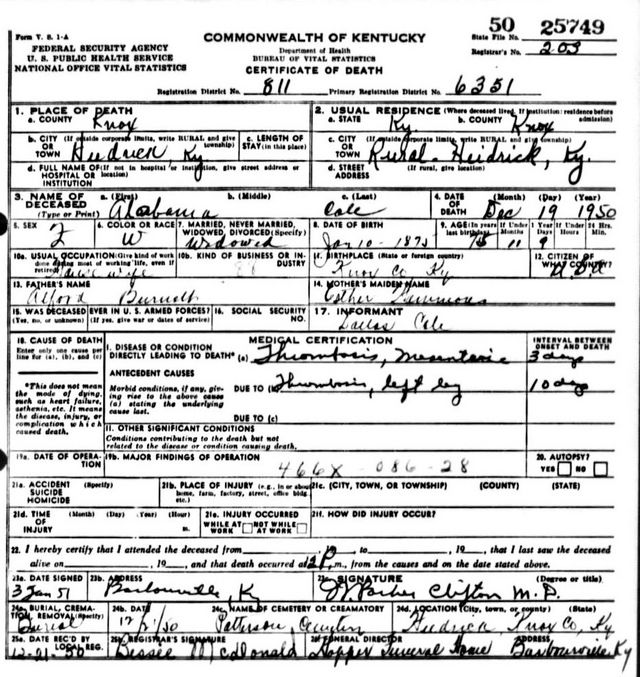 50 25749
Form V. S. 1-A
COMMONWEALTH OF KENTUCKY
State File No.
FEDERAL SECURITY AGENCY
Department of Health
Registrar's No. 203
U. S. PUBLIC HEALTH SERVICE
BUREAU OF VITAL STATISTICS
NATIONAL OFFICE VITAL STATISTICS
CERTIFICATE OF DEATH
Registration District No. 811 Primary Registration District No. 6351
1. PLACE OF DEATH
a. COUNTY Knox
2. USUAL RESIDENCE (Where deceased lived. If institution: residence before admission)
a. STATE Ky. b. COUNTY Knox
b. CITY (If outside corporate limits, write RURAL and give township) OR TOWN Heidrick, Ky
c. LENGTH OF STAY (in this place)
c. CITY (If outside corporate limits, write RURAL and give township) OR TOWN Rural-Heidrick, Ky.
d. FULL NAME OF (If not in hospital or institution, give street address or location) HOSPITAL OR INSTITUTION
d. STREET ADDRESS (If rural, give location)
3. NAME OF DECEASED (Type or Print) a. (First) Alabama b. (Middle) c. (Last) Cole
4. DATE OF DEATH (Month) (Day) (Year) Dec 19 1950
5. SEX F
6. COLOR OR RACE W
7. MARRIED, NEVER MARRIED, WIDOWED, DIVORCED (Specify) Widowed
8. DATE OF BIRTH Jan 10-1875
9. AGE (In years last birthday) 75 If Under 1 Year Months 11 Days 9 If Under 24 Hrs. Hours Min.
10a. USUAL OCCUPATION (Give kind of work done during most of working life, even if retired) House wife
10b. KIND OF BUSINESS OR INDUSTRY
11. BIRTHPLACE (State or foreign country) Knox Co, Ky
12. CITIZEN OF WHAT COUNTRY?
13. FATHER'S NAME Alford
14. MOTHER'S MAIDEN NAME Esther
15. WAS DECEASED EVER IN U. S. ARMED FORCES? (Yes, no, or unknown) (If yes, give war or dates of service)
16. SOCIAL SECURITY NO.
17. INFORMANT Dallas Cole
18. CAUSE OF DEATH
Enter only one cause per line for (a), (b), and (c)
MEDICAL CERTIFICATION
INTERVAL BETWEEN ONSET AND DEATH
I. DISEASE OR CONDITION DIRECTLY LEADING TO DEATH* (a) Thrombosis, Mesenteric 3 days
*This does not mean the mode of dying, such as heart failure, asthenia, etc. It means the disease, injury, or complication which caused death.
ANTECEDENT CAUSES
Morbid conditions, if any, giving rise to the above cause (a) stating the underlying cause last.
DUE TO (b) Thrombosis, left leg 10 days
DUE TO (c)
II. OTHER SIGNIFICANT CONDITIONS
Conditions contributing to the death but not related to the disease or condition causing death.
19a. DATE OF OPERATION
19b. MAJOR FINDINGS OF OPERATION
466X-086-28
20. AUTOPSY? YES NO
21a. ACCIDENT SUICIDE HOMICIDE (Specify)
21b. PLACE OF INJURY (e.g., in or about home, farm, factory, street, office bldg. etc.)
21c. (CITY, TOWN, OR TOWNSHIP) (COUNTY) (STATE)
21d. TIME OF INJURY (Month) (Day) (Year) (Hour) m.
21e. INJURY OCCURRED WHILE AT WORK NOT WHILE AT WORK
21f. HOW DID INJURY OCCUR?
22. I hereby certify that I attended the deceased from , 19 to , 19 , that I last saw the deceased
alive on , 19 , and that death occurred at 2 P. m., from the causes and on the date stated above.
23a. DATE SIGNED 3 Jan 51
23b. ADDRESS Barbourville, Ky
23c. SIGNATURE (Degree or title) Clifton M.D.
24a. BURIAL, CREMATION, REMOVAL (Specify) Burial
24b. DATE
24c. NAME OF CEMETERY OR CREAMATORY Patterson Cemetery
24d. LOCATION (City, town, or county) (State) Heidrick Knox Co, Ky
25a. DATE REC'D BY LOCAL REG. 12-21-50
25b. REGISTRAR'S SIGNATURE Bessie McDonald
26. FUNERAL DIRECTOR ADDRESS Hopper Funeral Home Barbourville, Ky